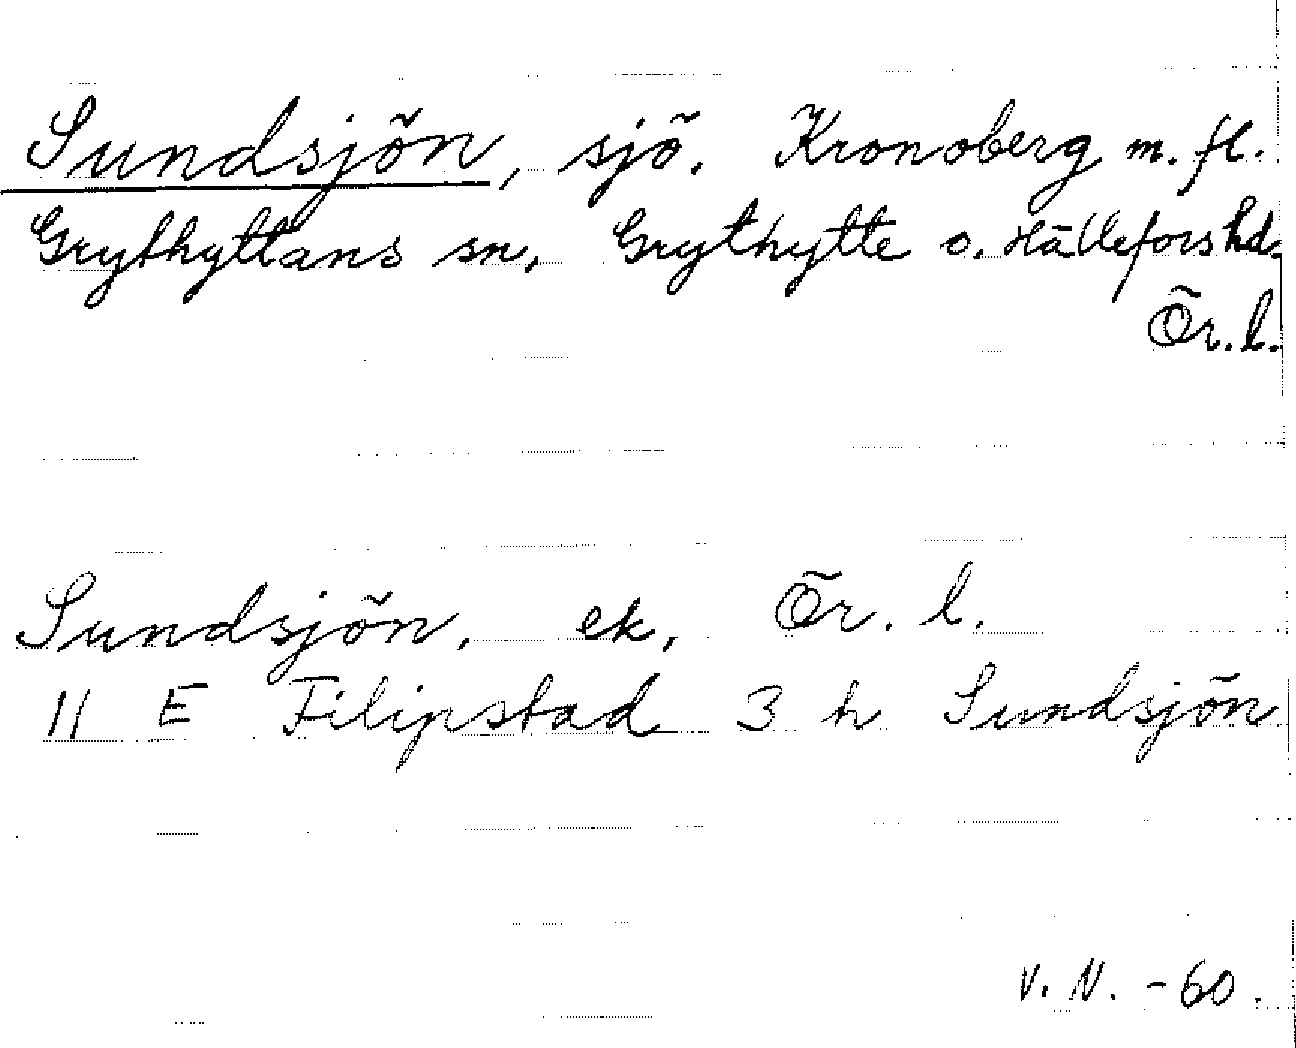 Sundsjön, sjö. Kronoberg m. fl.
Grythyttans sn, Grythytte o. Hällefors hd.
Ör. l.
Sundsjön, ek, Ör. l.
11 E Filipstad 3 h Sundsjön
V. N. - 60.